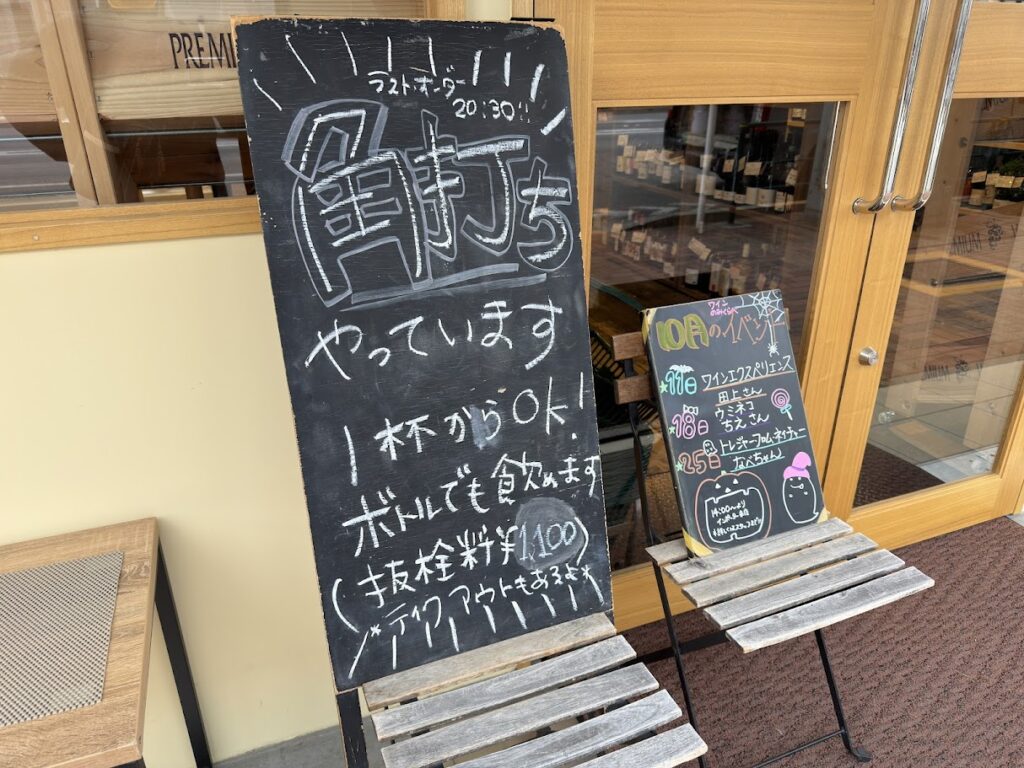 PREMI
ラストオーダー
20:30!!
角打ち
やっています
1杯からOK!
ボトルでも飲めます
(抜栓料¥1,100)
*テイクアウトもあるよ*
ワイン
のみくらべ
10月のイベント
11日 ワインエクスペリエンス
田上さん
18日 ウミネコ
ちえさん
25日 トレジャーフロムネイチャー
なべちゃん
14:00〜より